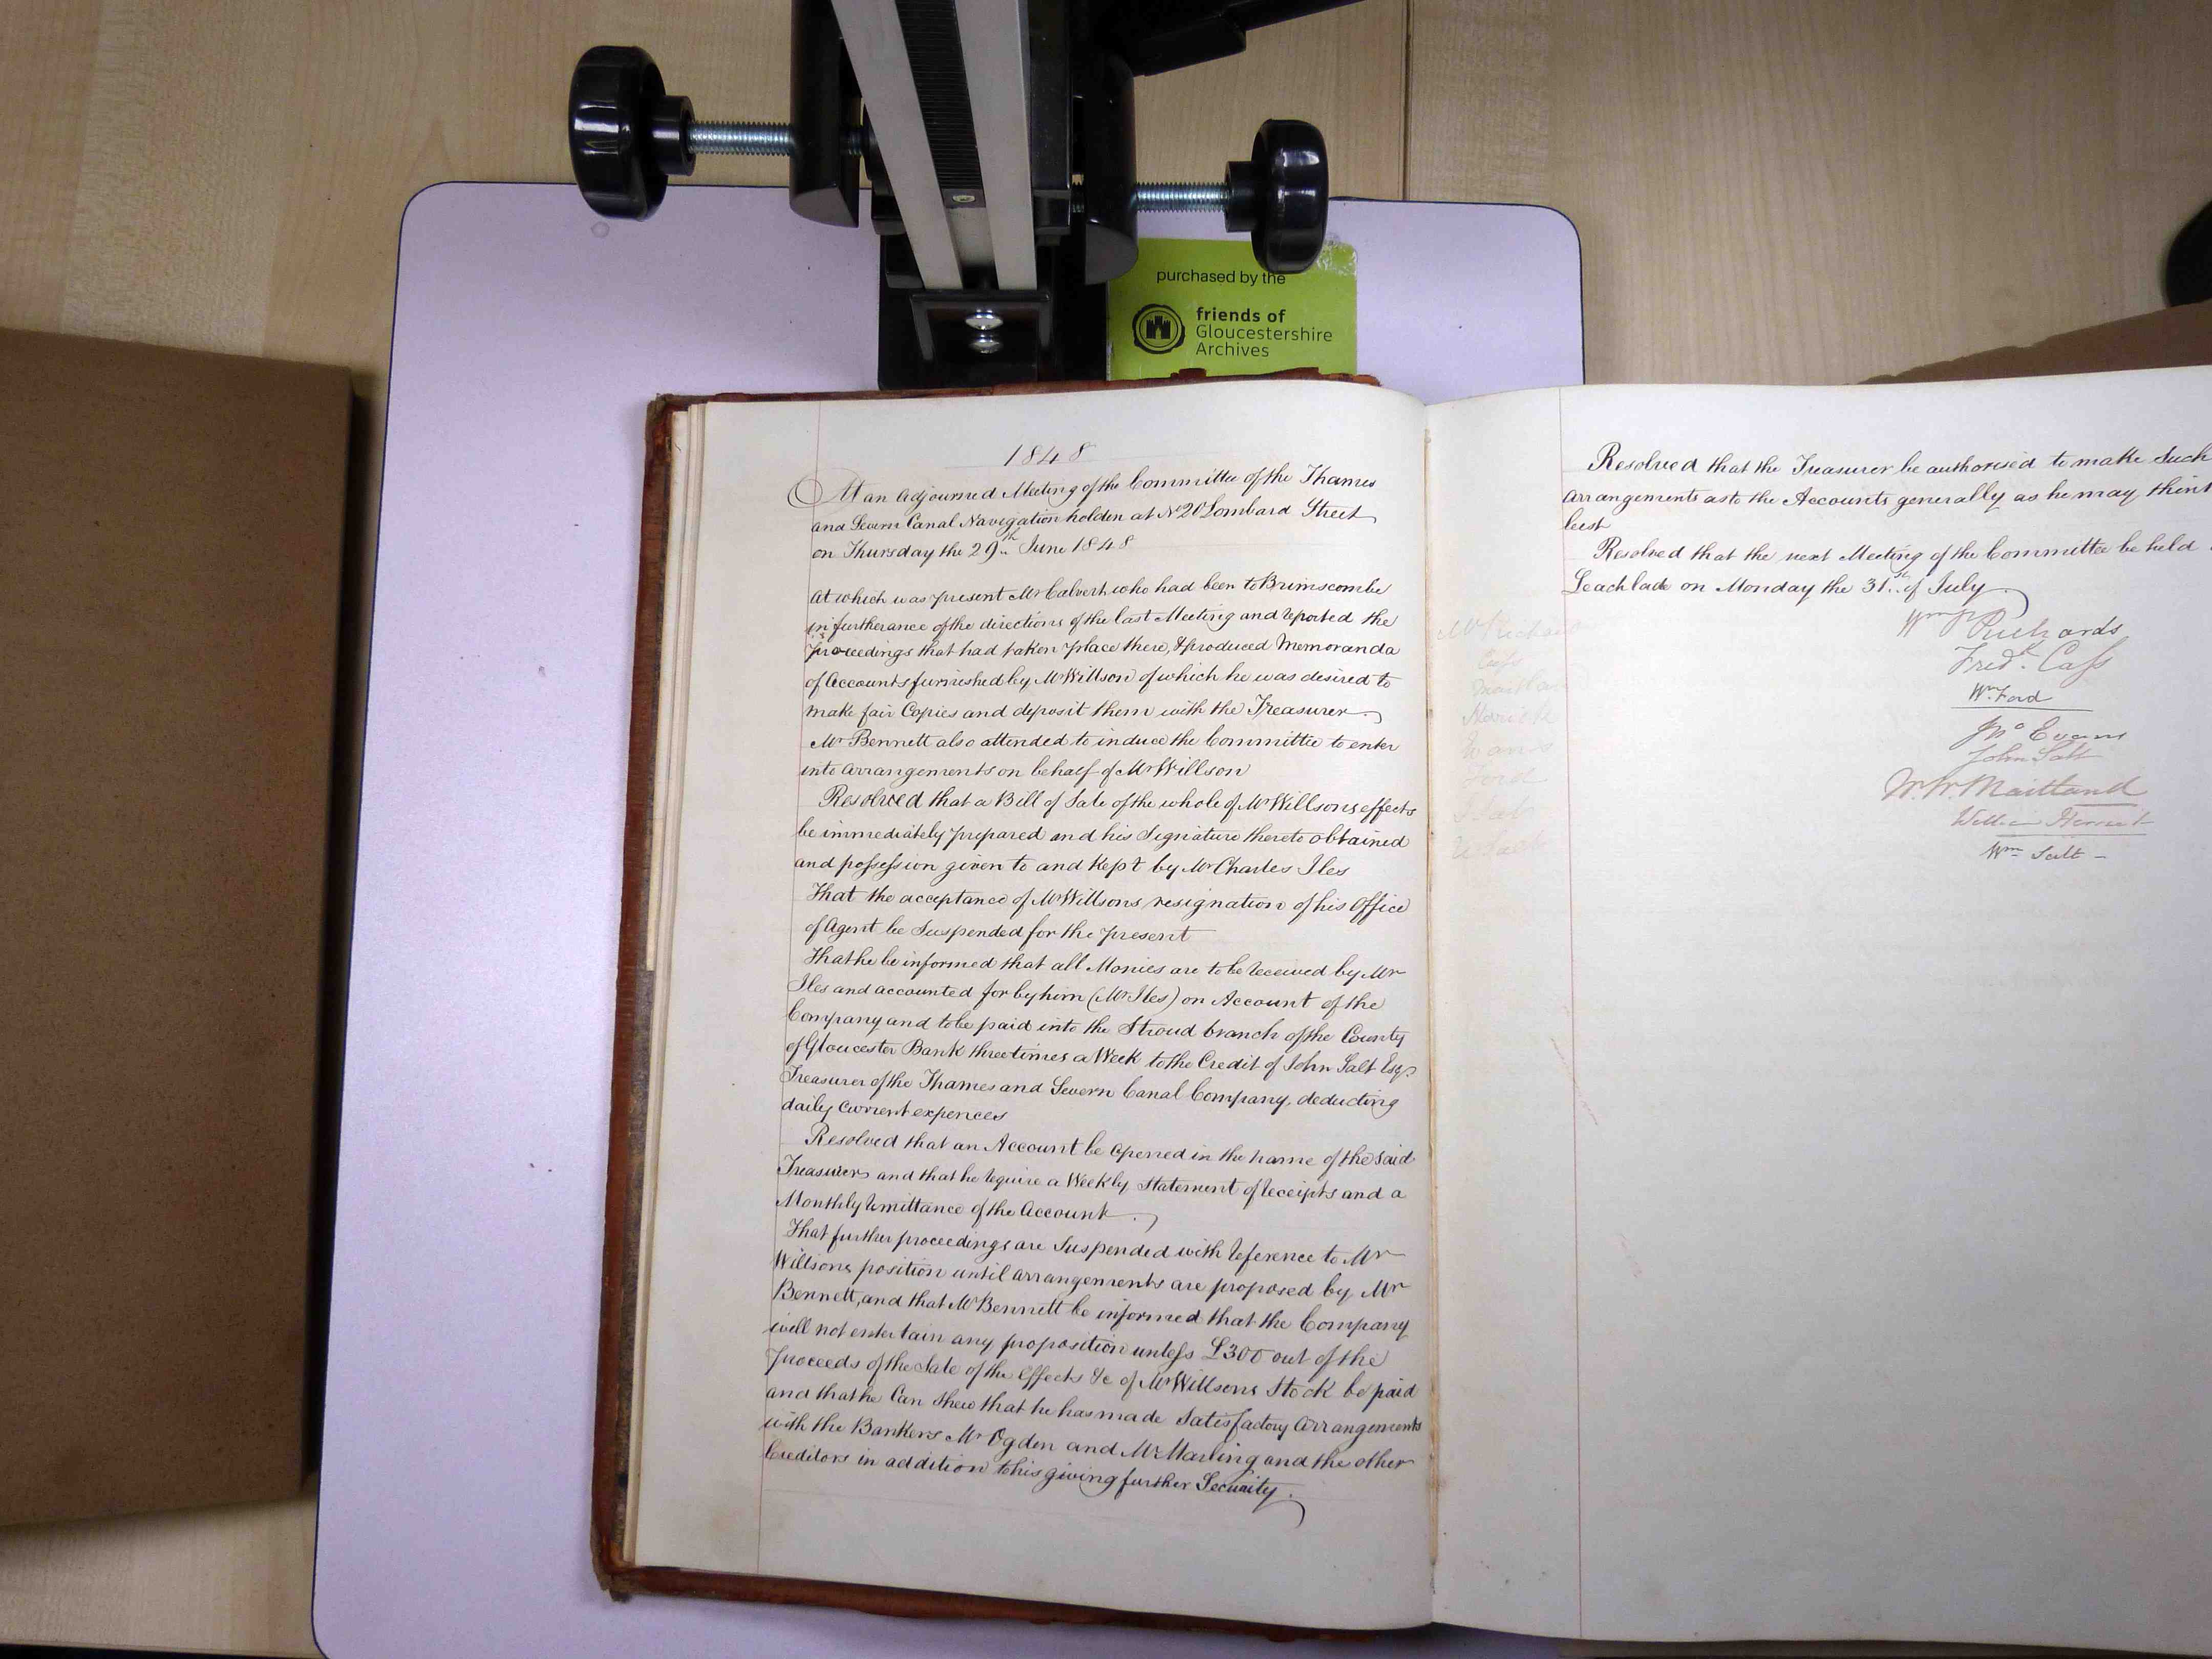 purchased by the
friends of
Gloucestershire
Archives
1848
At an Adjourned Meeting of the Committee of the Thames
and Severn Canal Navigation holden at No 20 Lombard Street
on Thursday the 29th June 1848
At which was present Mr Calvert who had been to Brimscombe
in furtherance of the directions of the last Meeting and reported the
proceedings that had taken place there, & produced Memoranda
of Accounts furnished by Mr Willson of which he was desired to
make fair Copies and deposit them with the Treasurer.
Mr Bennett also attended to induce the Committee to enter
into arrangements on behalf of Mr Willson
Resolved that a Bill of Sale of the whole of Mr Willsons effects
be immediately prepared and his Signature thereto obtained
and possession given to and kept by Mr Charles Iles
That the acceptance of Mr Willsons resignation of his Office
of Agent be Suspended for the present
That he be informed that all Monies are to be received by Mr
Iles and accounted for by him (Mr Iles) on Account of the
Company and to be paid into the Stroud branch of the County
of Gloucester Bank three times a Week to the Credit of John Salt Esqr
Treasurer of the Thames and Severn Canal Company, deducting
daily current expences
Resolved that an Account be opened in the name of the said
Treasurer and that he require a Weekly Statement of receipts and a
Monthly remittance of the Account.
That further proceedings are Suspended with reference to Mr
Willsons position until arrangements are proposed by Mr
Bennett, and that Mr Bennett be informed that the Company
will not entertain any proposition unless £300 out of the
proceeds of the Sale of the Effects &c of Mr Willsons Stock be paid
and that he Can shew that he has made Satisfactory Arrangements
with the Bankers Mr Ogden and Mr Marling and the other
Creditors in addition to his giving further Security.
Resolved that the Treasurer be authorised to make Such
arrangements as to the Accounts generally as he may think
best
Resolved that the next Meeting of the Committee be held
Leachlade on Monday the 31st of July
Mr Richards
Cass
Maitland
Evans
Ford
Salt
W Salt
Richards
Fredk. Cass
Wm Ford
Jno Evans
John Salt
W. W. Maitland
Wm Salt